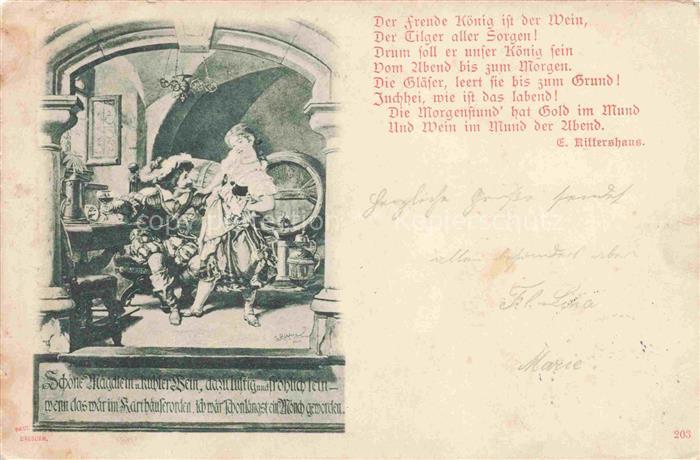 Der Freude König ist der Wein,
Der Tilger aller Sorgen!
Drum soll er unser König sein
Vom Abend bis zum Morgen.
Die Gläser, leert sie bis zum Grund!
Juchhei, wie ist das labend!
Die Morgenstund' hat Gold im Mund
Und Wein im Mund der Abend.
E. Rittershaus.
Herzliche Grüße sendet
allen besonders aber
Frl. Lora
Marie.
Schöne Mägdlein u. kühler Wein, dazu lustig und fröhlich sein —
wenn das wär im Karthäuserorden, ich wär schon längst ein Mönch geworden.
DRESDEN.
203